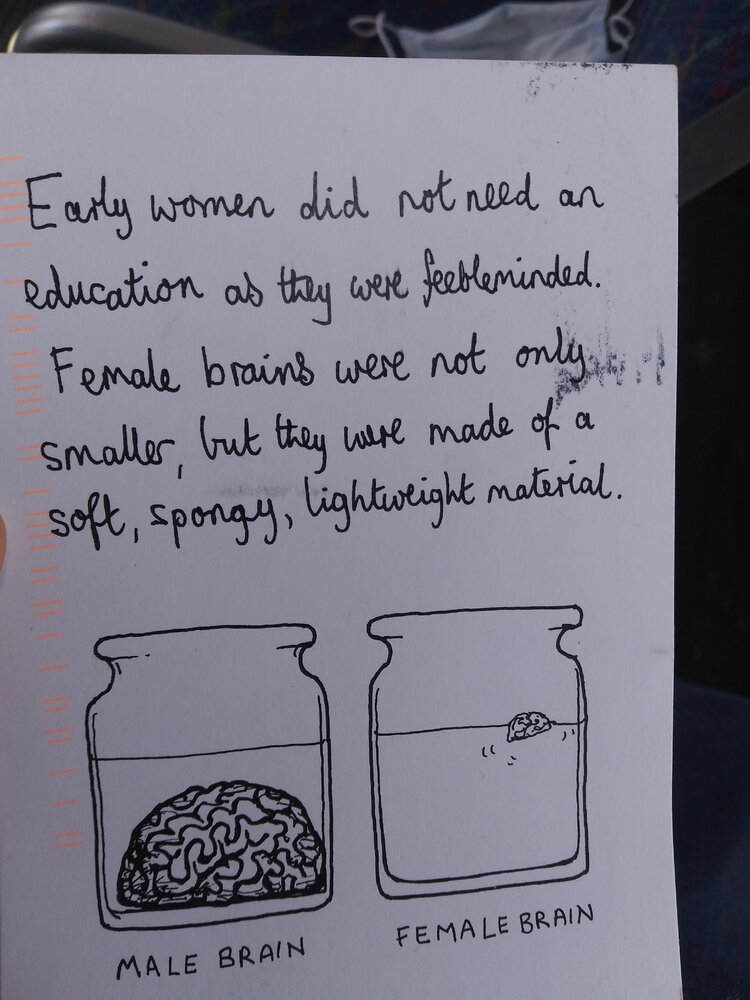 Early women did not need an
education as they were feebleminded.
Female brains were not only
smaller, but they were made of a
soft, spongy, lightweight material.
MALE BRAIN
FEMALE BRAIN